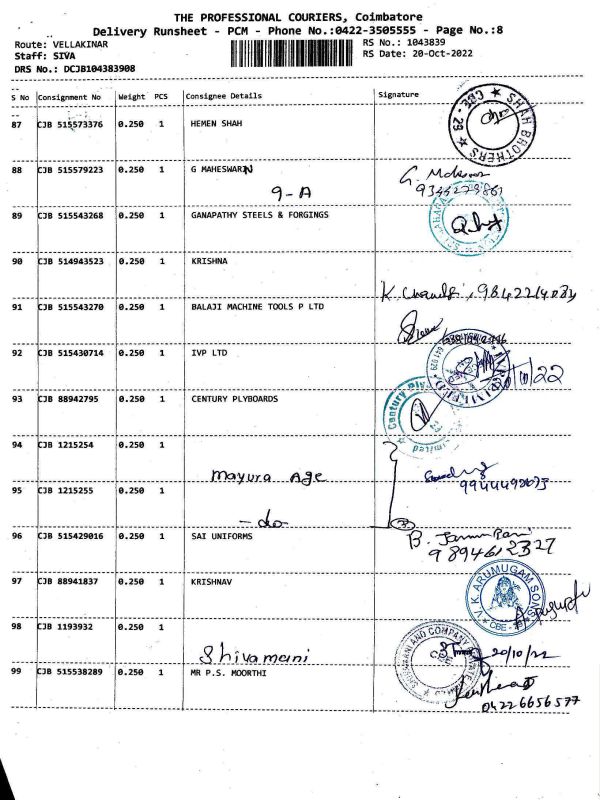 THE PROFESSIONAL COURIERS, Coimbatore
Delivery Runsheet - PCM - Phone No.:0422-3505555 - Page No.:8
Route: VELLAKINAR
RS No.: 1043839
Staff: SIVA
RS Date: 20-Oct-2022
DRS No.: DCJB104383908
S No Consignment No Weight PCS Consignee Details Signature
87 CJB 515573376 0.250 1 HEMEN SHAH
SHAH BROTHERS ★ CBE - 29 ★
88 CJB 515579223 0.250 1 G MAHESWARIN
9-A
89 CJB 515543268 0.250 1 GANAPATHY STEELS & FORGINGS
90 CJB 514943523 0.250 1 KRISHNA
91 CJB 515543270 0.250 1 BALAJI MACHINE TOOLS P LTD
92 CJB 515430714 0.250 1 IVP LTD
93 CJB 88942795 0.250 1 CENTURY PLYBOARDS
94 CJB 1215254 0.250 1
mayura Age
95 CJB 1215255 0.250 1
-do-
96 CJB 515429016 0.250 1 SAI UNIFORMS
9894612327
97 CJB 88941837 0.250 1 KRISHNAV
V.K. ARUMUGAM SONS
98 CJB 1193932 0.250 1
Shivamani
20/10/22
99 CJB 515538289 0.250 1 MR P.S. MOORTHI
04226656577